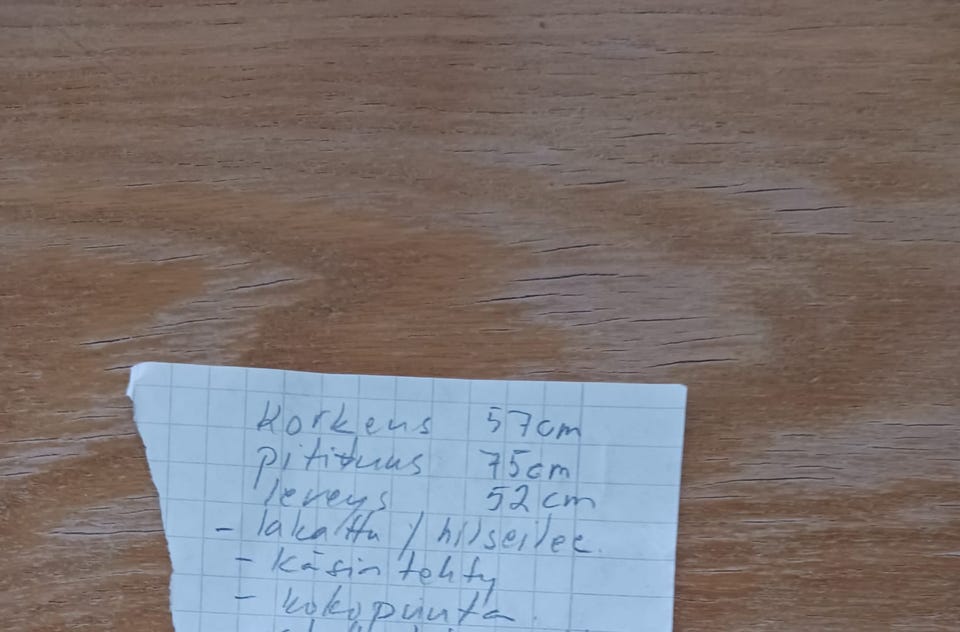 Korkeus 57cm
pitituus 75cm
leveys 52cm
- lakattu / hilseilee.
- käsin tehty
- kokopuuta.